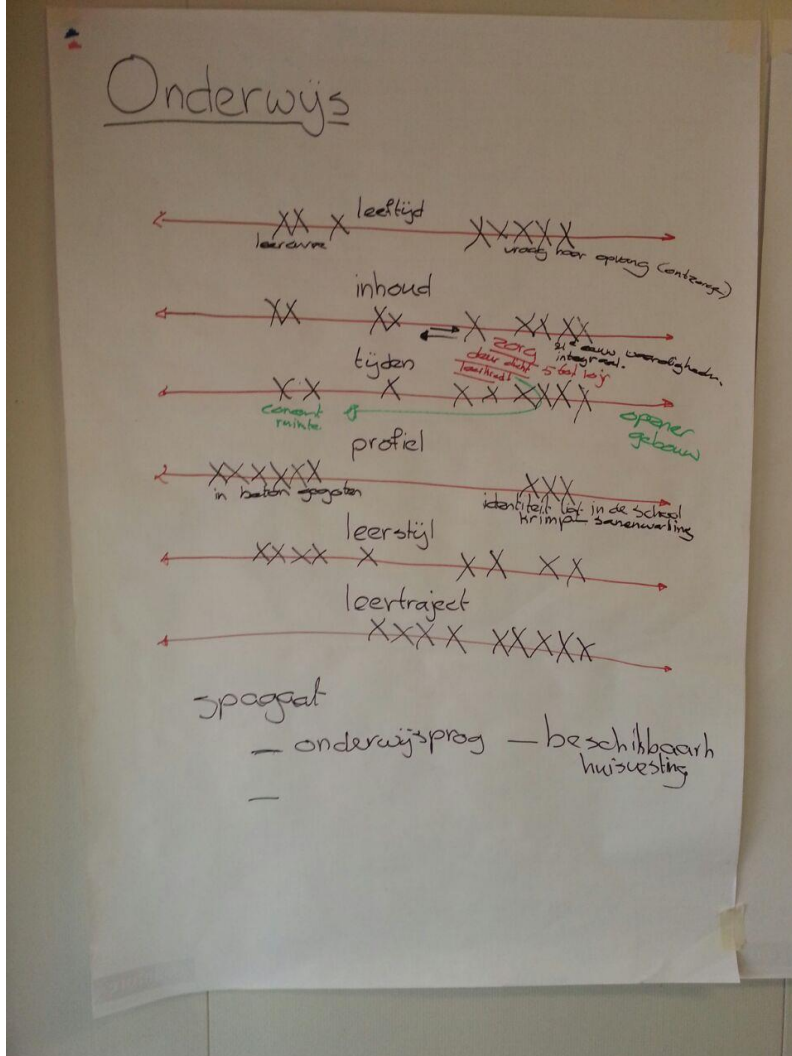 Onderwijs
leeftijd
XX X XXXXX
vraag naar opvang (ontzorgen)
inhoud
XX XX X XX XX
21e eeuw vaardigheden.
integraal.
zorg
deur dicht 5 tot 10 jr
leerkracht
tijden
XX X XX XXXX
ruimte.
opener
gebouw
profiel
XXXXXX XXX
in beton gegoten
identiteit in de school
krimp – samenwerking
leerstijl
XXXX X XX XX
leertraject
XXXX XXXXX
spagaat
— onderwijsprog — beschikbaarh
huisvesting
—